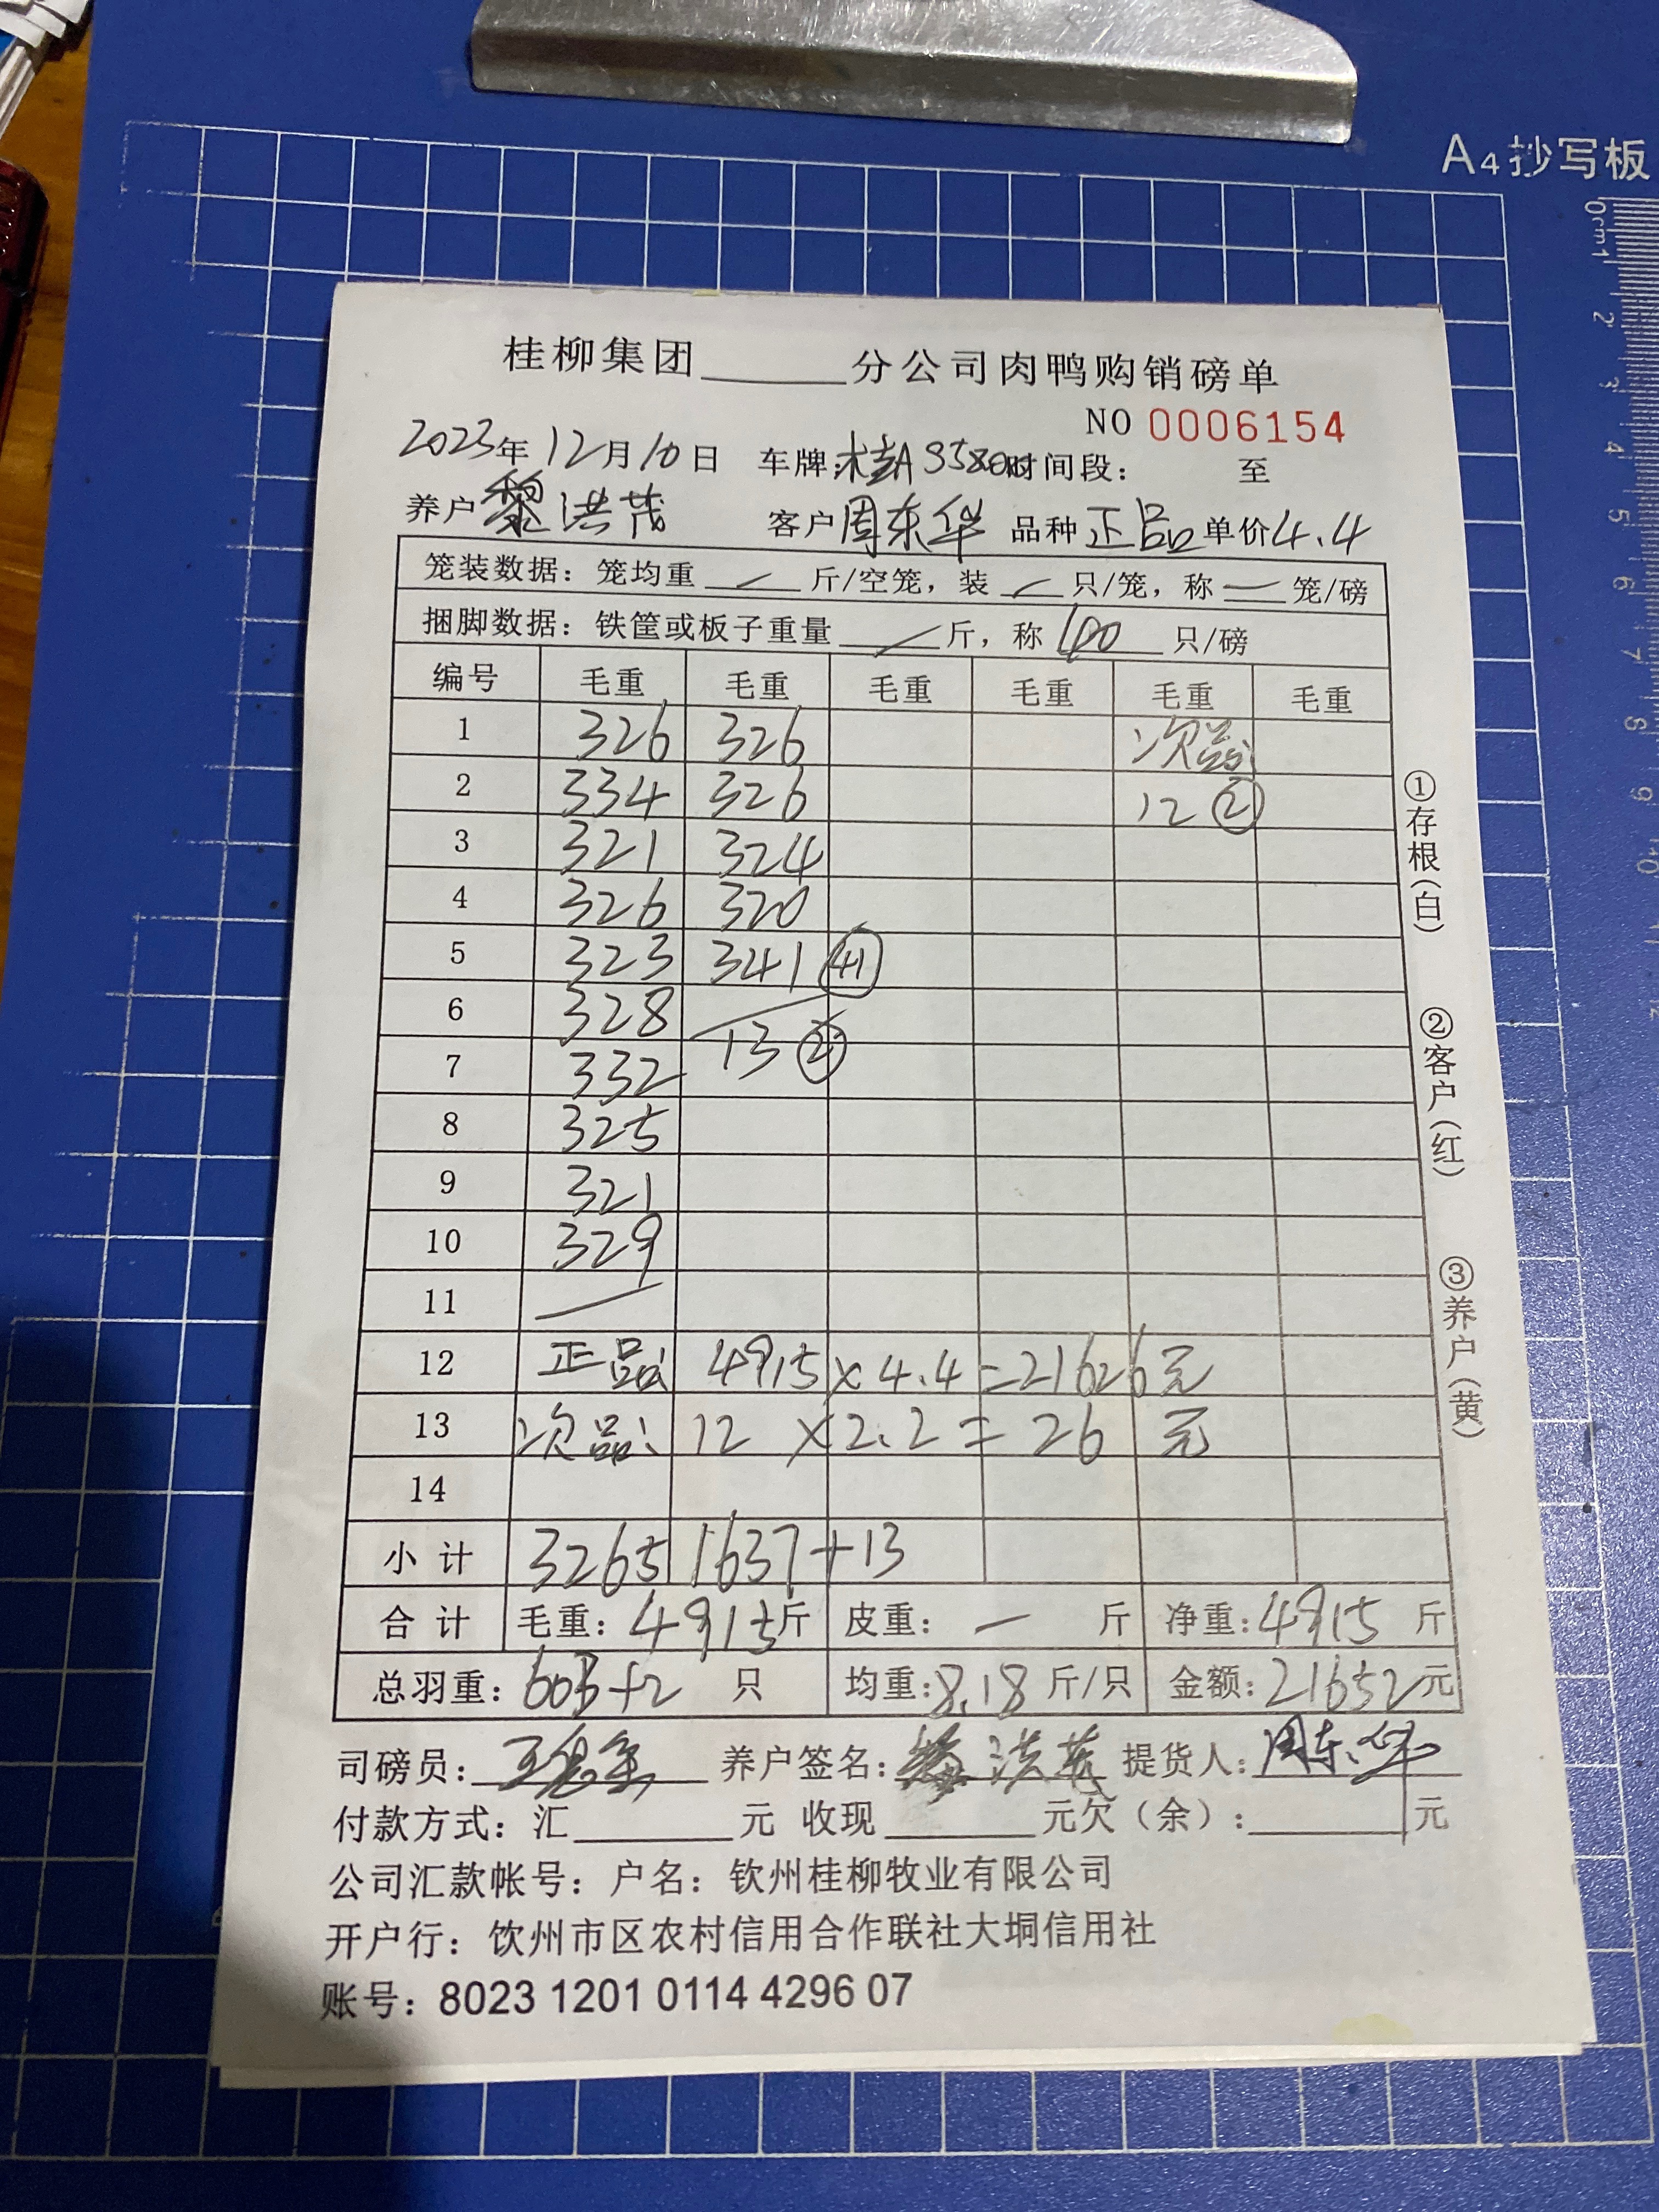 A4抄写板
0cm1 2 3 4 5 6 7 8 9 10
桂柳集团______分公司肉鸭购销磅单
NO 0006154
2023年12月10日 车牌:桂A 时间段: 至
养户 黎洪茂 客户 周东华 品种 正品 单价4.4
笼装数据:笼均重 — 斤/空笼,装 — 只/笼,称 — 笼/磅
捆脚数据:铁筐或板子重量 — 斤,称 40 只/磅
编号 毛重 毛重 毛重 毛重 毛重 毛重
1 326 326 次品
2 334 326 12 ②
3 321 324
4 326 320
5 323 341 (41)
6 328
7 332 13 ②
8 325
9 321
10 329
11
12 正品: 4915×4.4=21626元
13 次品: 12×2.2=26 元
14
小计 3265 1637+13
合计 毛重:4915斤 皮重:— 斤 净重:4915 斤
总羽重:603+2 只 均重:8.18 斤/只 金额:21652元
司磅员: 养户签名:黎洪茂 提货人:周东华
付款方式:汇______元 收现______元欠(余):______元
公司汇款帐号:户名:钦州桂柳牧业有限公司
开户行:钦州市区农村信用合作联社大垌信用社
账号:8023 1201 0114 4296 07
①存根(白)
②客户(红)
③养户(黄)